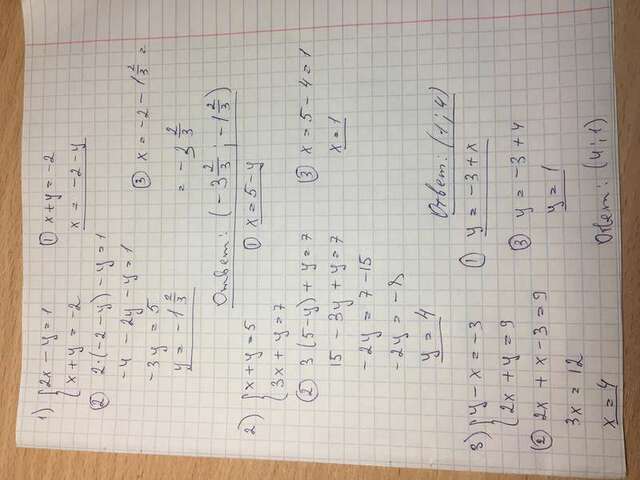 1) { 2x - y = 1
x + y = -2
① x + y = -2
x = -2 - y
② 2·(-2 - y) - y = 1
-4 - 2y - y = 1
-3y = 5
y = -1 2/3
③ x = -2 - 1 2/3 =
= -3 2/3
Ответ: (-3 2/3 ; -1 2/3)
2) { x + y = 5
3x + y = 7
① x = 5 - y
② 3 (5 - y) + y = 7
15 - 3y + y = 7
-2y = 7 - 15
-2y = -8
y = 4
③ x = 5 - 4 = 1
x = 1
Ответ: (1; 4)
3) { y - x = -3
2x + y = 9
① y = -3 + x
② 2x + x - 3 = 9
3x = 12
x = 4
③ y = -3 + 4
y = 1
Ответ: (4; 1)